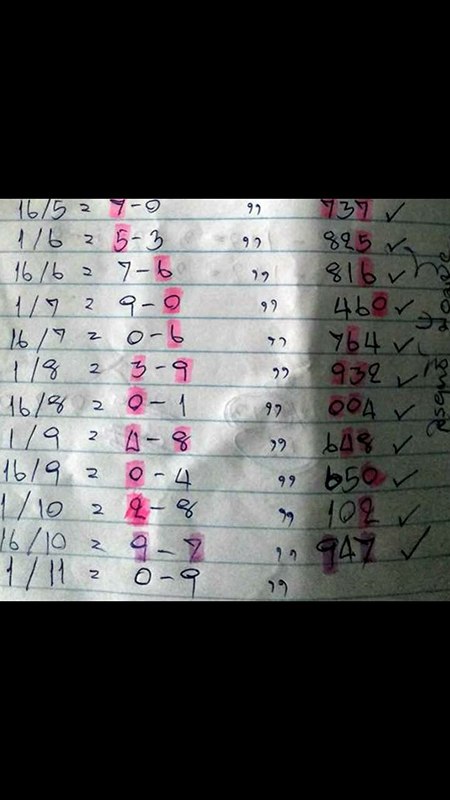 16/5 = 7-0 ,, 737 ✓
1/6 = 5-3 ,, 825 ✓
16/6 = 7-6 ,, 816 ✓
1/7 = 9-0 ,, 460 ✓
16/7 = 0-6 ,, 764 ✓
1/8 = 3-9 ,, 932 ✓
16/8 = 0-1 ,, 004 ✓
1/9 = 4-8 ,, 648 ✓
16/9 = 0-4 ,, 650 ✓
1/10 = 2-8 ,, 102 ✓
16/10 = 9-7 ,, 947 ✓
1/11 = 0-9 ,,